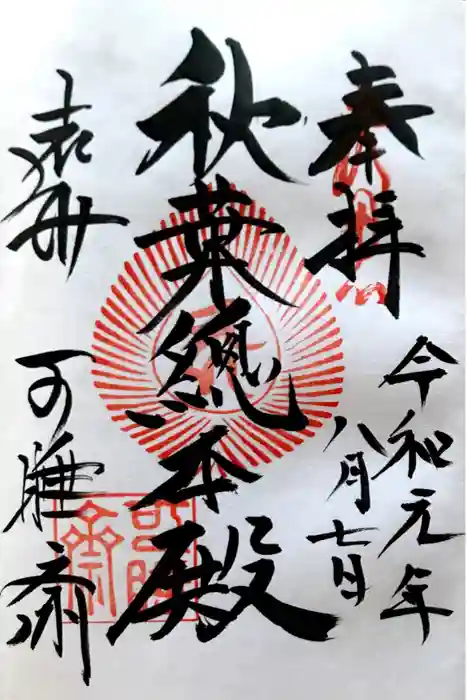 奉拝
令和元年
八月七日
秋葉總本殿
遠州
可睡齋